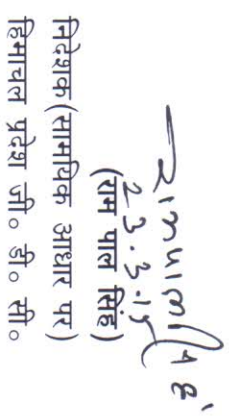 रामपाल सिंह
23.3.15
(राम पाल सिंह)
निदेशक(सामयिक आधार पर)
हिमाचल प्रदेश जी० डी० सी०